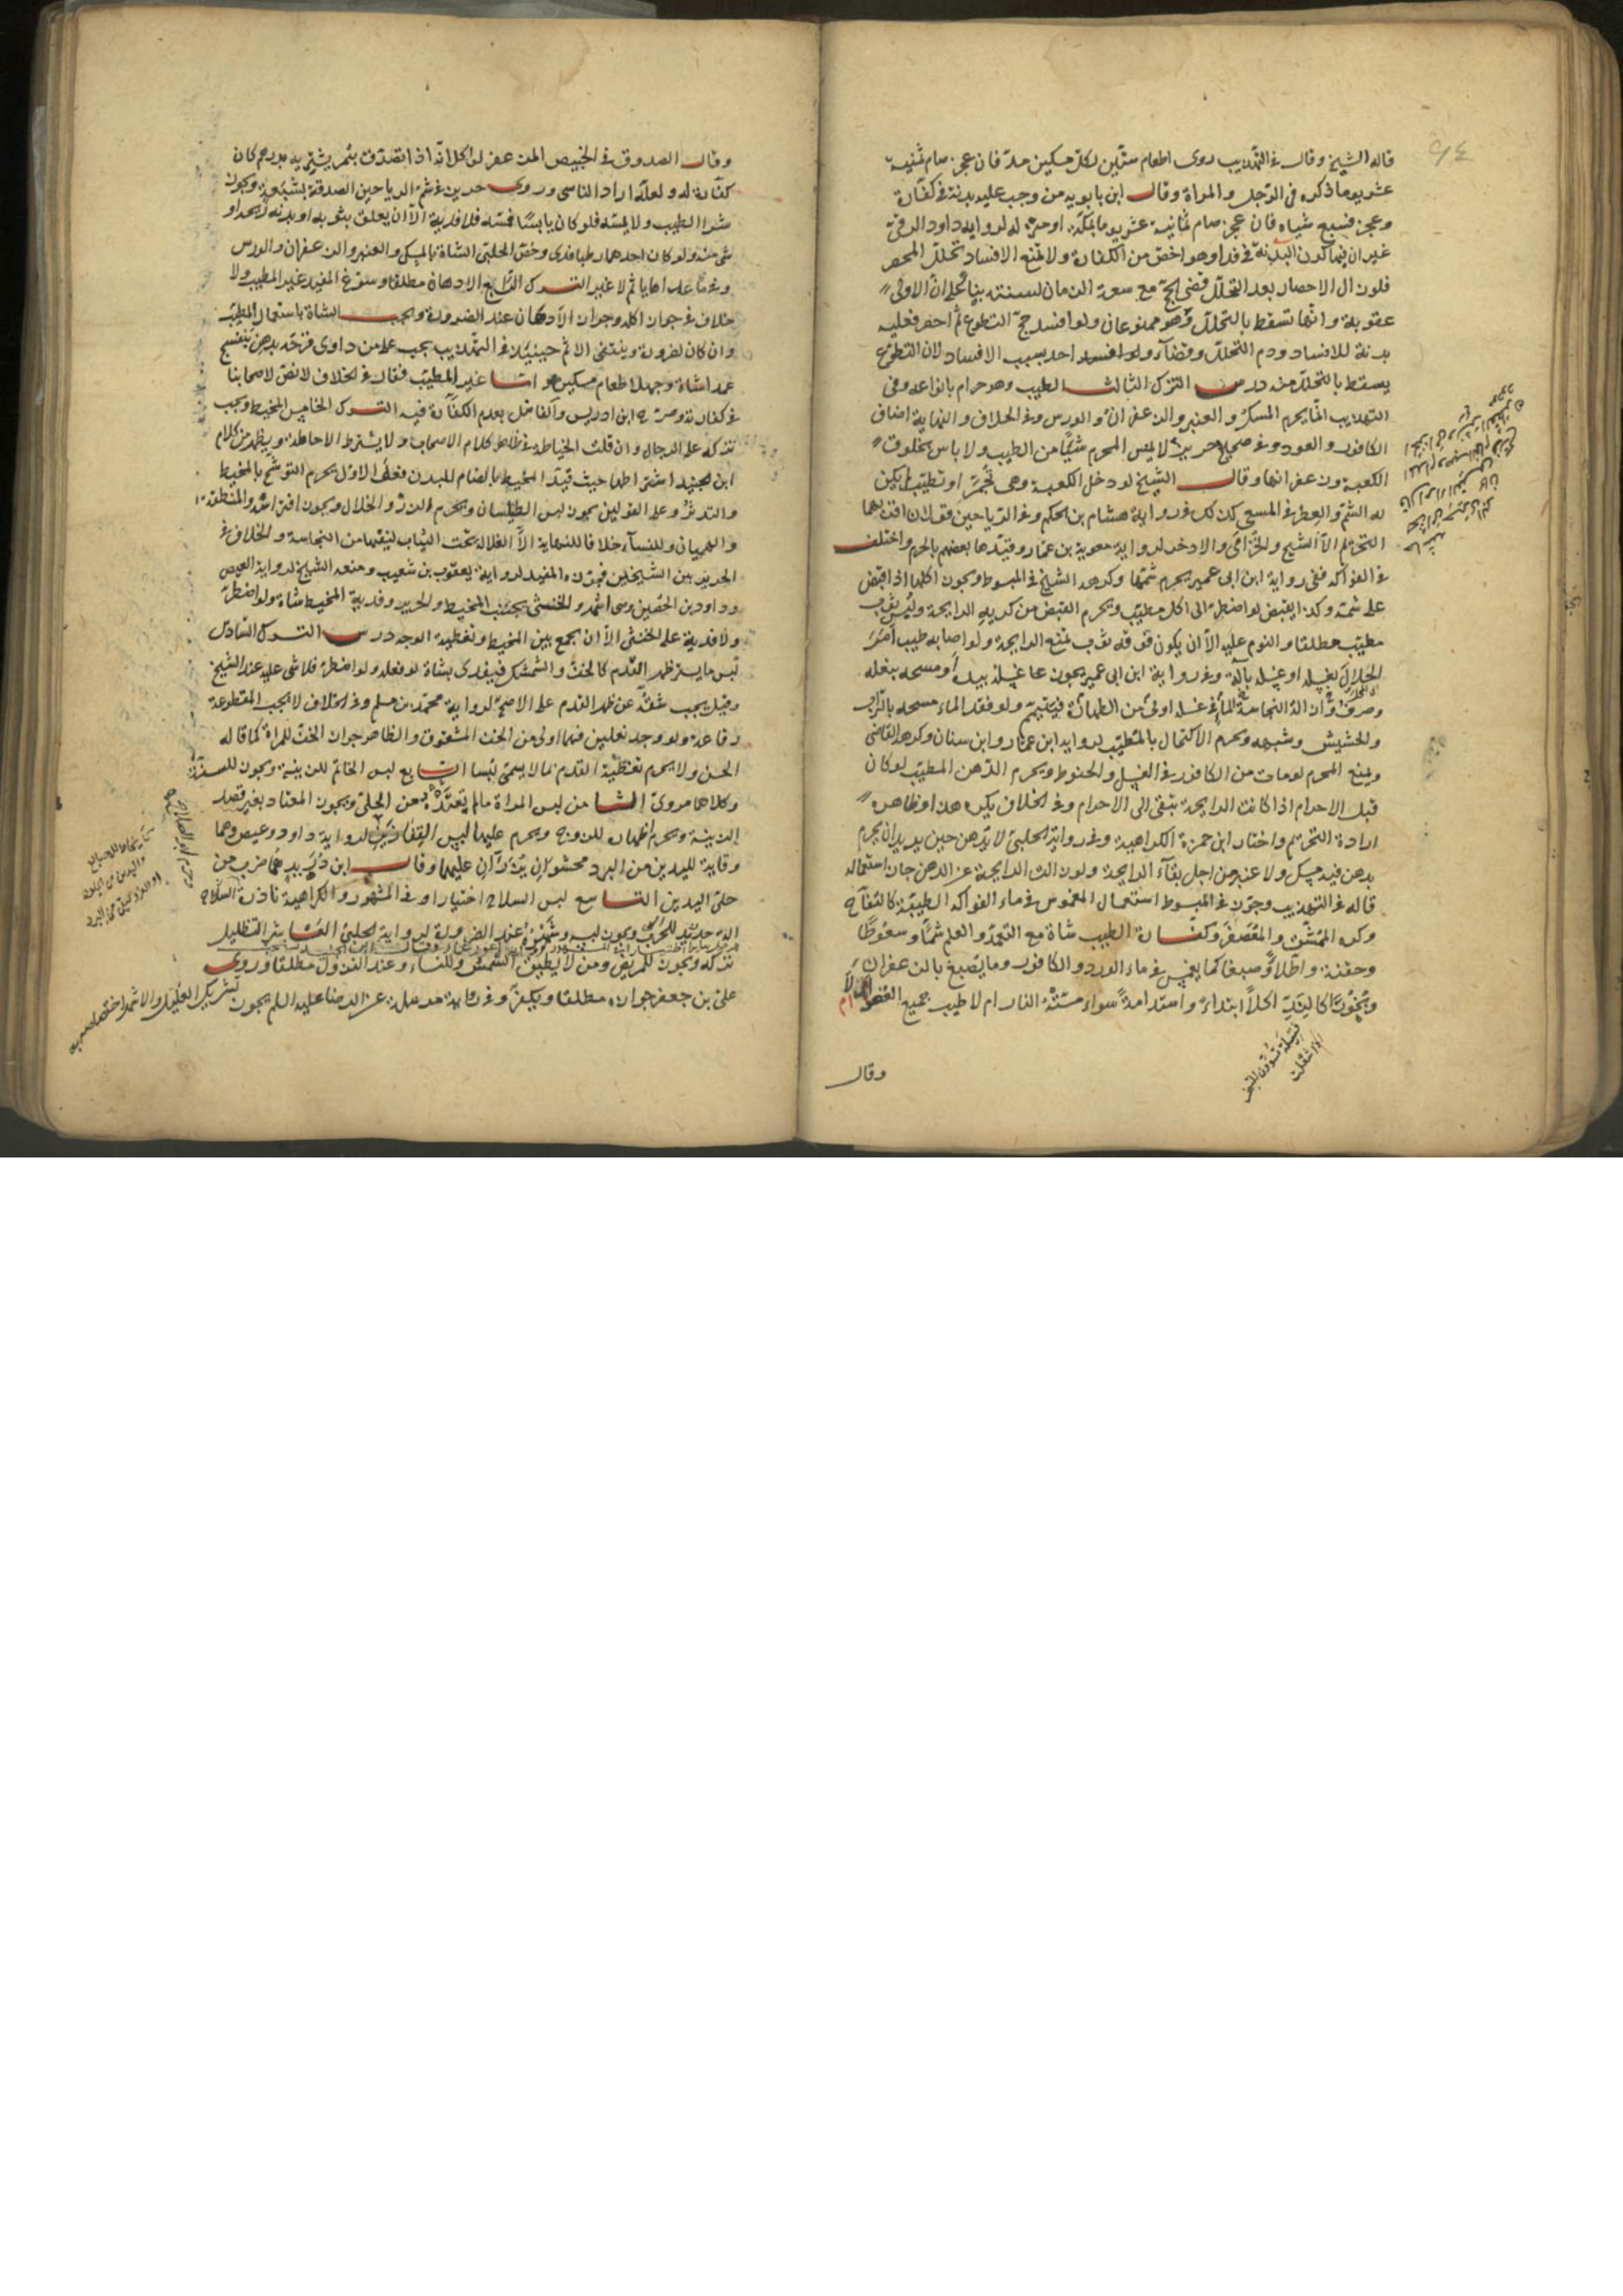 قاله الشيخ وقال في التهذيب روى اطعام ستين لكل مسكين مد فان عجز صام ثمنية
عشر يوما ذكره في الرجل والمراة وقال ابن بابويه من وجب عليه بدنة في كفارة
وعجز فسبع شياه فان عجز صام ثمانية عشر يوما بمكة او منزله لرواية داود الرقي
غير ان فيها كون البدنة في فداء وهو اخص من الكفارة ولا تمنع الافساد تحلل المحصر
فلو زال الاحصار بعد التحلل قضى الحج مع سعة الزمان لسنته بناء على ان الاولى
عقوبة وانها تسقط بالتحلل وهو ممنوعان ولو افسد حج التطوع ثم احصر فعليه
بدنة للافساد ودم التحلل وقضاء ولو افسد احد بسبب الافساد لان التطوع
يسقط بالتحلل منه درس الترك الثالث الطيب وهو حرام بانواعه وفي
التهذيب انما يحرم المسك والعنبر والزعفران والورس وفي الخلاف والنهاية اضاف
الكافور والعود وفي صحيح حريز لا يمس المحرم شيئا من الطيب ولا باس بخلوق
الكعبة وزعفرانها وقال الشيخ لو دخل الكعبة وهي تجمر او تطيب لم يكن
له الشم والعطر في المسعى كذلك في رواية هشام بن الحكم وفي الرياحين قولان اقربهما
التحريم الا الشيح والخزامى والاذخر لرواية معوية بن عمار وقيدها بعضهم بالحرم واختلف
في الفواكه ففي رواية ابن ابي عمير يحرم شمها وكرهه الشيخ في المبسوط ويجوز اكلها اذا قبض
على شمه وكذا يقبض لو اضطر الى اكل مطيب ويحرم القبض من كريه الرايحة ولبس ثوب
مطيب مطلقا والنوم عليه الا ان يكون فوقه ثوب يمنع الرايحة ولو اصابه طيب امر
الحلال بغسله او غسله بآلة وفي رواية ابن ابي عمير يجوز غسله بيده او مسحه بنعله
وصرف الماء في غسله اولى من الطهارة فيتيمم ولو فقد الماء مسحه بالتراب
والحشيش وشبهه ويحرم الاكتحال بالمطيب لرواية ابن عمار وابن سنان وكرهه القاضي
ويمنع المحرم لو مات من الكافور في الغسل والحنوط ويحرم الدهن المطيب لو كان
قبل الاحرام اذا كانت الرايحة تبقى الى الاحرام وفي الخلاف يكره هذا وظاهره
ارادة التحريم واختار ابن حمزة الكراهية وفي رواية الحلبي لا تدهن حين تريد ان تحرم
بدهن فيه مسك ولا عنبر من اجل بقاء الرايحة ولو زالت الرايحة عن الدهن جاز استعماله
قاله في التهذيب وجوز في المبسوط استعمال المغموس في ماء الفواكه الطيبة كالتفاح
وكره الممشق والمعصفر وكفارة الطيب شاة مع التعمد والعلم شما وسعوطا
وحقنة واطلاء وصبغا كما يغمس في ماء الورد والكافور وما يصبغ بالزعفران
وبخورا كالند اكلا ابتداء واستدامة سواء مسته النار ام لا طيب جميع العضو ام لا
وقال
وقال الصدوق في الخبيص المزعفر لو اكل انه اذا تصدق بتمر يشتريه بدرهم كان
كفارة له ولعله اراد الناسي وروى حريز في شم الرياحين الصدقة بشبعه ويجوز
شرا الطيب ولا يمسه فلو كان يابسا فمسه فلا فدية الا ان يعلق بثوبه او بدنه ريحه او
شي منه ولو كان احدهما رطبا فدى وخص الحلبي الشاة بالمسك والعنبر والزعفران والورس
وفي ما عداها ياثم لا غير الترك الرابع الادهان مطلقا وسوغ المفيد غير المطيب ولا
خلاف في جواز اكله وجواز الادهان عند الضرورة ويجب الشاة باستعمال المطيب
وان كان لضرورة وينتفي الاثم حينئذ وفي التهذيب يجب على من داوى قرحه بدهن بنفسج
عمدا شاة وجهلا طعام مسكين واما غير المطيب فقال في الخلاف لا نص لاصحابنا
في كفارته وصرح ابن ادريس والفاضل بعدم الكفارة فيه الترك الخامس المخيط ويجب
تركه على الرجال وان قلت الخياطة في ظاهر كلام الاصحاب ولا يشترط الاحاطة ويظهر من كلام
ابن الجنيد اشتراطها حيث قيد المخيط بالضام للبدن فعلى الاول يحرم التوشح بالمخيط
والتدثر وعلى القولين يجوز لبس الطيلسان ويحرم الزر والخلال ويجوز افتراشه والمنطقة
والهميان وللنساء خلافا للنهاية الا الغلالة تحت الثياب لتقيها من النجاسة والخلاف في
الحرير بين الشيخين فجوزه المفيد لرواية يعقوب بن شعيب ومنعه الشيخ لرواية العيص
وداود بن الحصين وهي اشهر والخنثى يجتنب المخيط والحرير وفدية المخيط شاة ولو اضطر
ولا فدية على الخنثى الا ان يجمع بين المخيط وتغطية الوجه درس الترك السادس
لبس ما يستر ظهر القدم كالخف والشمشك فيفدى بشاة لو فعله ولو اضطر فلا شي عليه عند الشيخ
وقيل يجب شقه عن ظهر القدم على الاصح لرواية محمد بن مسلم وفي الخلاف لا يجب المقطوعة
رقاعه ولو وجد نعلين فهما اولى من الخف المشقوق والظاهر جواز الخف للمراة كما قاله
الحسن ولا يحرم تغطية القدم بما لا يسمى لبسا السابع لبس الخاتم للزينة ويجوز للسنة
وكلاهما مروي الثامن لبس المراة ما لم تعتده من الحلي ويجوز المعتاد بغير قصد
الزينة ويحرم اظهاره للزوج ويحرم عليها لبس القفازين لرواية داود وعيص وهما
وقاية لليدين من البرد محشوان يزران عليهما وقال ابن دريد هما ضرب من
حلي اليدين التاسع لبس السلاح اختيارا وفي المشهور والكراهية نادرة السلاح
الة حديد للحرب ويجوز لبسه وشهره عند الضرورة لرواية الحلبي العاشر التظليل
تركه ويجوز للمريض ومن لا يطيق الشمس وللنساء وعند النزول مطلقا وروى
علي بن جعفر جوازه مطلقا ويكفر وفي رواية مرسلة عن الرضا عليه السلم يجوز تشريك العليل والاشهر اختصاصه به